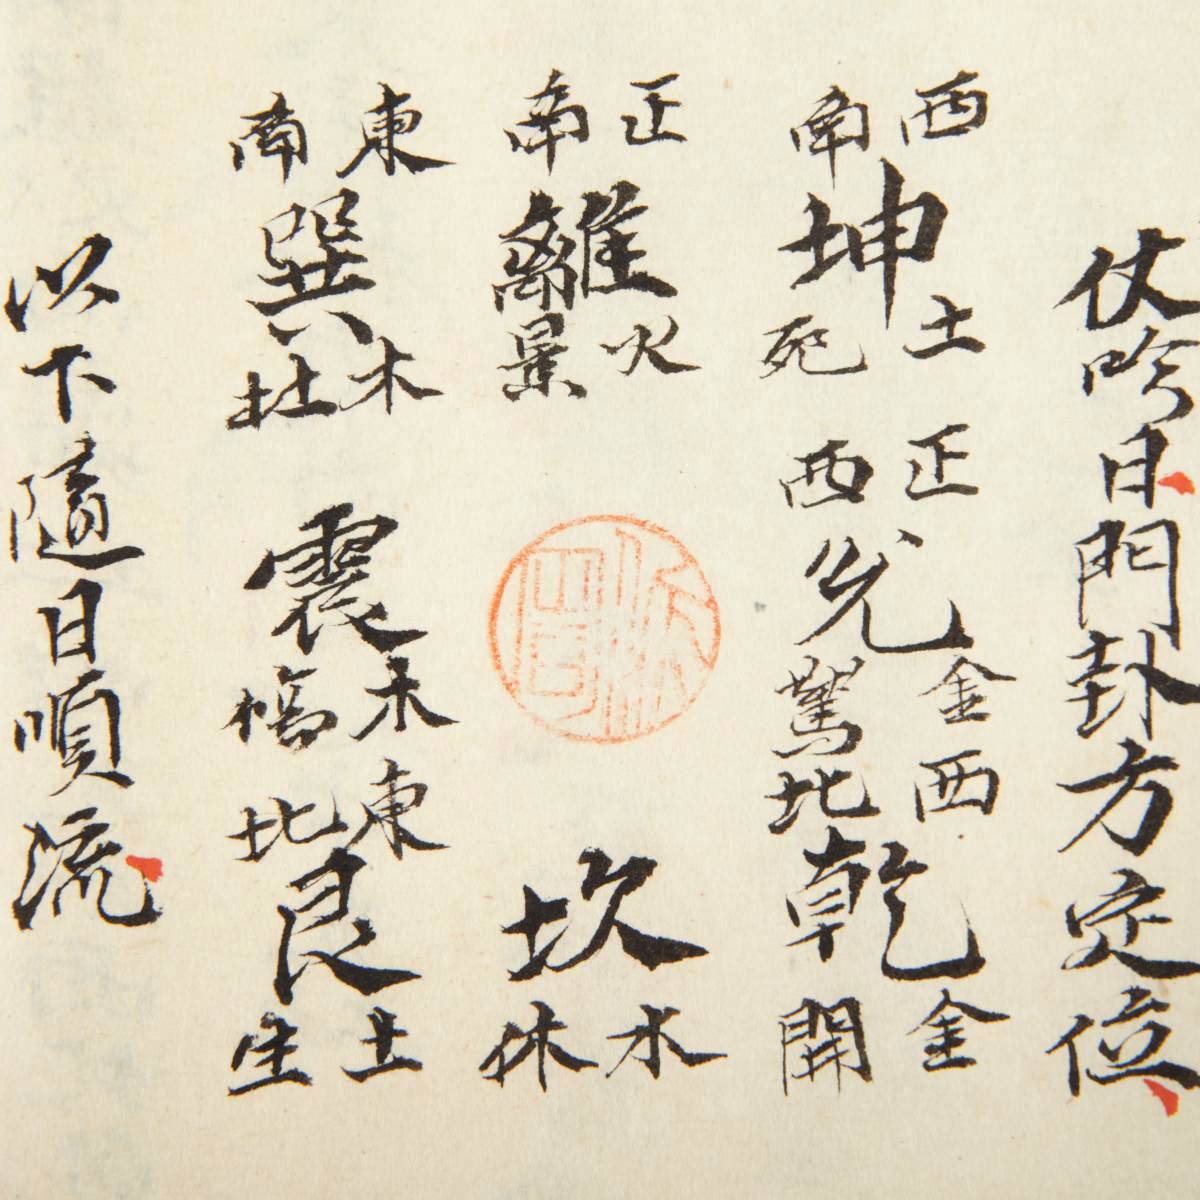 仗吟日門卦方定位
西南坤土死正西兌金驚西北乾金開
正南離火景坎水休
東南巽木杜震木傷東北艮土生
以下隨日順流